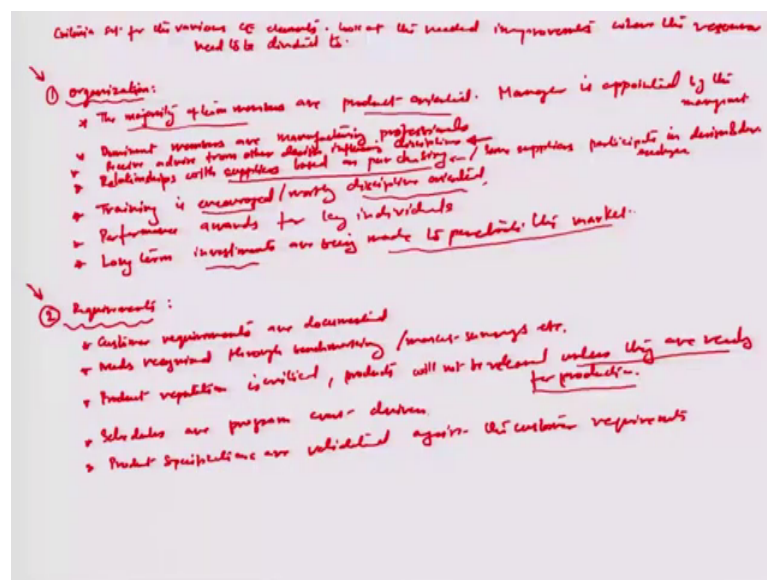 Criteria set for the various CE elements. Look at the needed improvements where the resources
need to be directed to.
① Organization:
* The majority of team members are product-oriented. Manager is appointed by the
management
* Dominant members are manufacturing professionals
* Receive advise from other design influence disciplines
* Relationships with suppliers based on purchasing / Some suppliers participate in design
* Training is encouraged/mostly discipline oriented.
* Performance awards for key individuals
* Long term investments are being made to penetrate the market.
② Requirements:
* Customer requirements are documented
* Needs recognized through benchmarking / market-surveys etc.
* Product reputation is critical, products will not be released unless they are ready
for production.
* Schedules are program event-driven.
* Product specifications are validated against the customer requirements